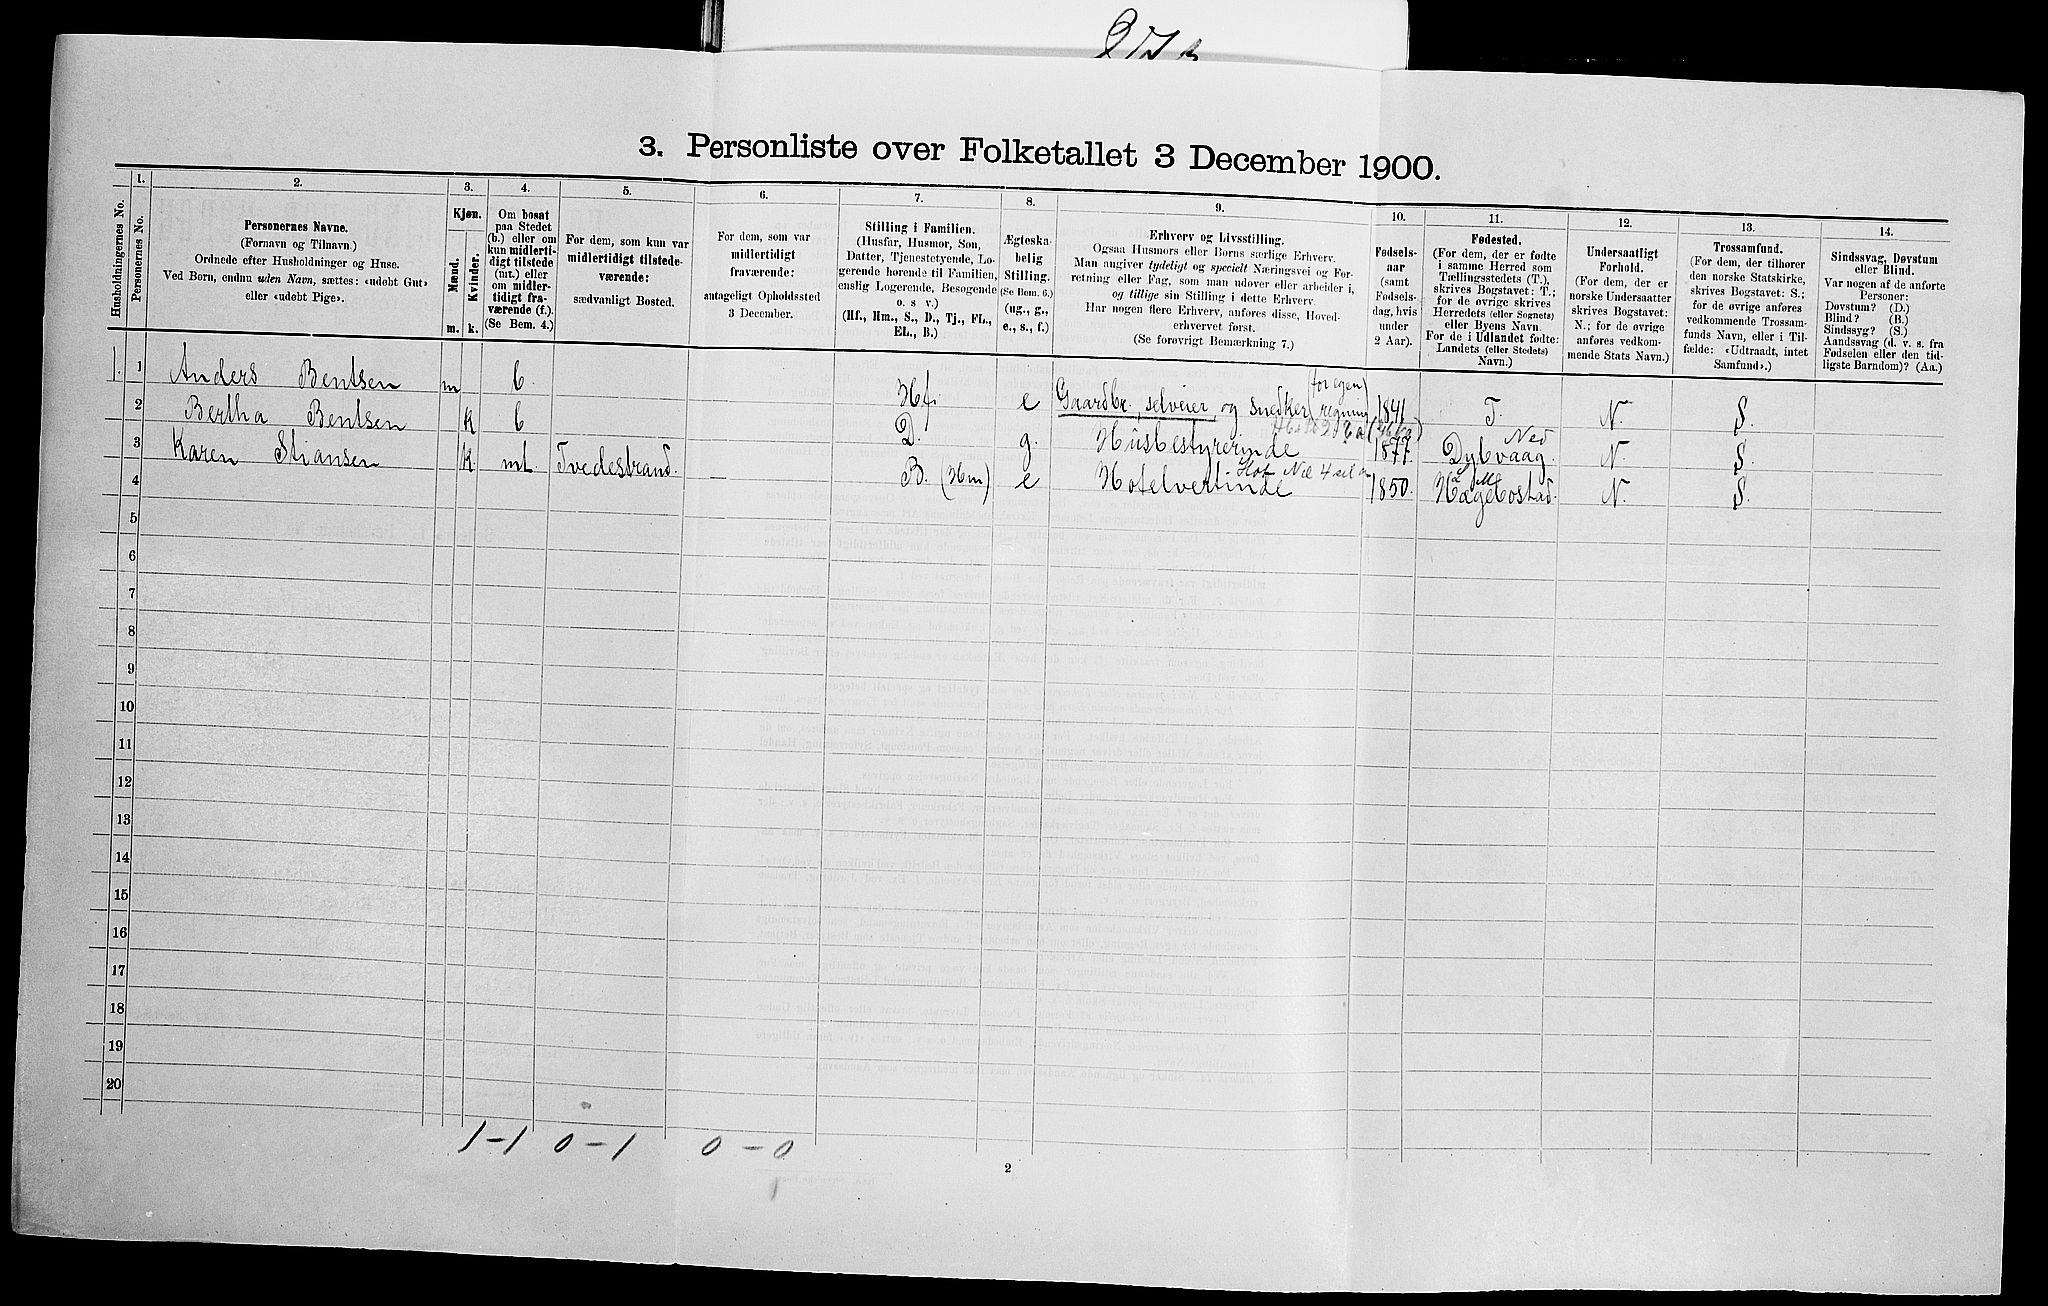 3. Personliste over Folketallet 3 December 1900.
Husholdningernes No.
1.
Personernes No.
2.
Personernes Navne.
(Fornavn og Tilnavn.)
Ordnede efter Husholdninger og Huse.
Ved Børn, endnu uden Navn, sættes: «udøbt Gut»
eller «udøbt Pige».
3.
Kjøn.
Mænd.
Kvinder.
m.
k.
4.
Om bosat
paa Stedet
(b.) eller om
kun midlerti-
digt tilstede
(mt.) eller
om midler-
tidigt fra-
værende (f.).
(Se Bem. 4.)
5.
For dem, som kun var
midlertidigt tilstede-
værende:
sædvanligt Bosted.
6.
For dem, som var
midlertidigt
fraværende:
antageligt Opholdssted
3 December.
7.
Stilling i Familien.
(Husfar, Husmor, Søn,
Datter, Tjenestetyende, Lo-
gerende hørende til Familien,
enslig Logerende, Besøgende
o. s. v.)
(Hf., Hm., S., D., Tj., FL.,
EL., B.)
8.
Ægteska-
belig
Stilling.
(Se Bem. 6.)
(ug., g.,
e., s., f.)
9.
Erhverv og Livsstilling.
Ogsaa Husmors eller Børns særlige Erhverv.
Man angiver tydeligt og specielt Næringsvei og For-
retning eller Fag, som man udøver eller arbeider i,
og tillige sin Stilling i dette Erhverv.
Har nogen flere Erhverv, anføres disse, Hoved-
erhvervet først.
(Se forøvrigt Bemærkning 7.)
10.
Fødsels-
aar
(samt
Fødsels-
dag, hvis
under
2 Aar).
11.
Fødested.
(For dem, der er fødte
i samme Herred som
Tællingsstedets (T.),
skrives Bogstavet: T.;
for de øvrige skrives
Herredets (eller Sognets)
eller Byens Navn.
For de i Udlandet fødte:
Landets (eller Stedets)
Navn.)
12.
Undersaatligt
Forhold.
(For dem, der er
norske Undersaatter
skrives Bogstavet:
N.; for de øvrige
anføres vedkom-
mende Stats Navn.)
13.
Trossamfund.
(For dem, der tilhører
den norske Statskirke,
skrives Bogstavet: S.;
for de øvrige anføres
vedkommende Trossam-
funds Navn, eller i Til-
fælde: «Udtraadt, intet
Samfund».)
14.
Sindssvag, Døvstum
eller Blind.
Var nogen af de anførte
Personer:
Døvstum? (D.)
Blind? (B.)
Sindssyg? (S.)
Aandssvag (d. v. s. fra
Fødselen eller den tid-
ligste Barndom)? (Aa.)
1. 1 Anders Bentsen m b. Hf. e Gaardbr., selveier, og snedker (for egen regning) 1841 T. N. S.
2 Bertha Bentsen k b D. g. Husbestyrerinde 1877. Dybvaag. Ned N. S.
3 Karen Stiansen k. mt. Tvedestrand. — B. (Hm) e Hotelvertinde 1850. Hægebostad. N. S.
4
5
6
7
8
9
10
11
12
13
14
15
16
17
18
19
20
1-1 0-1 0-0
2